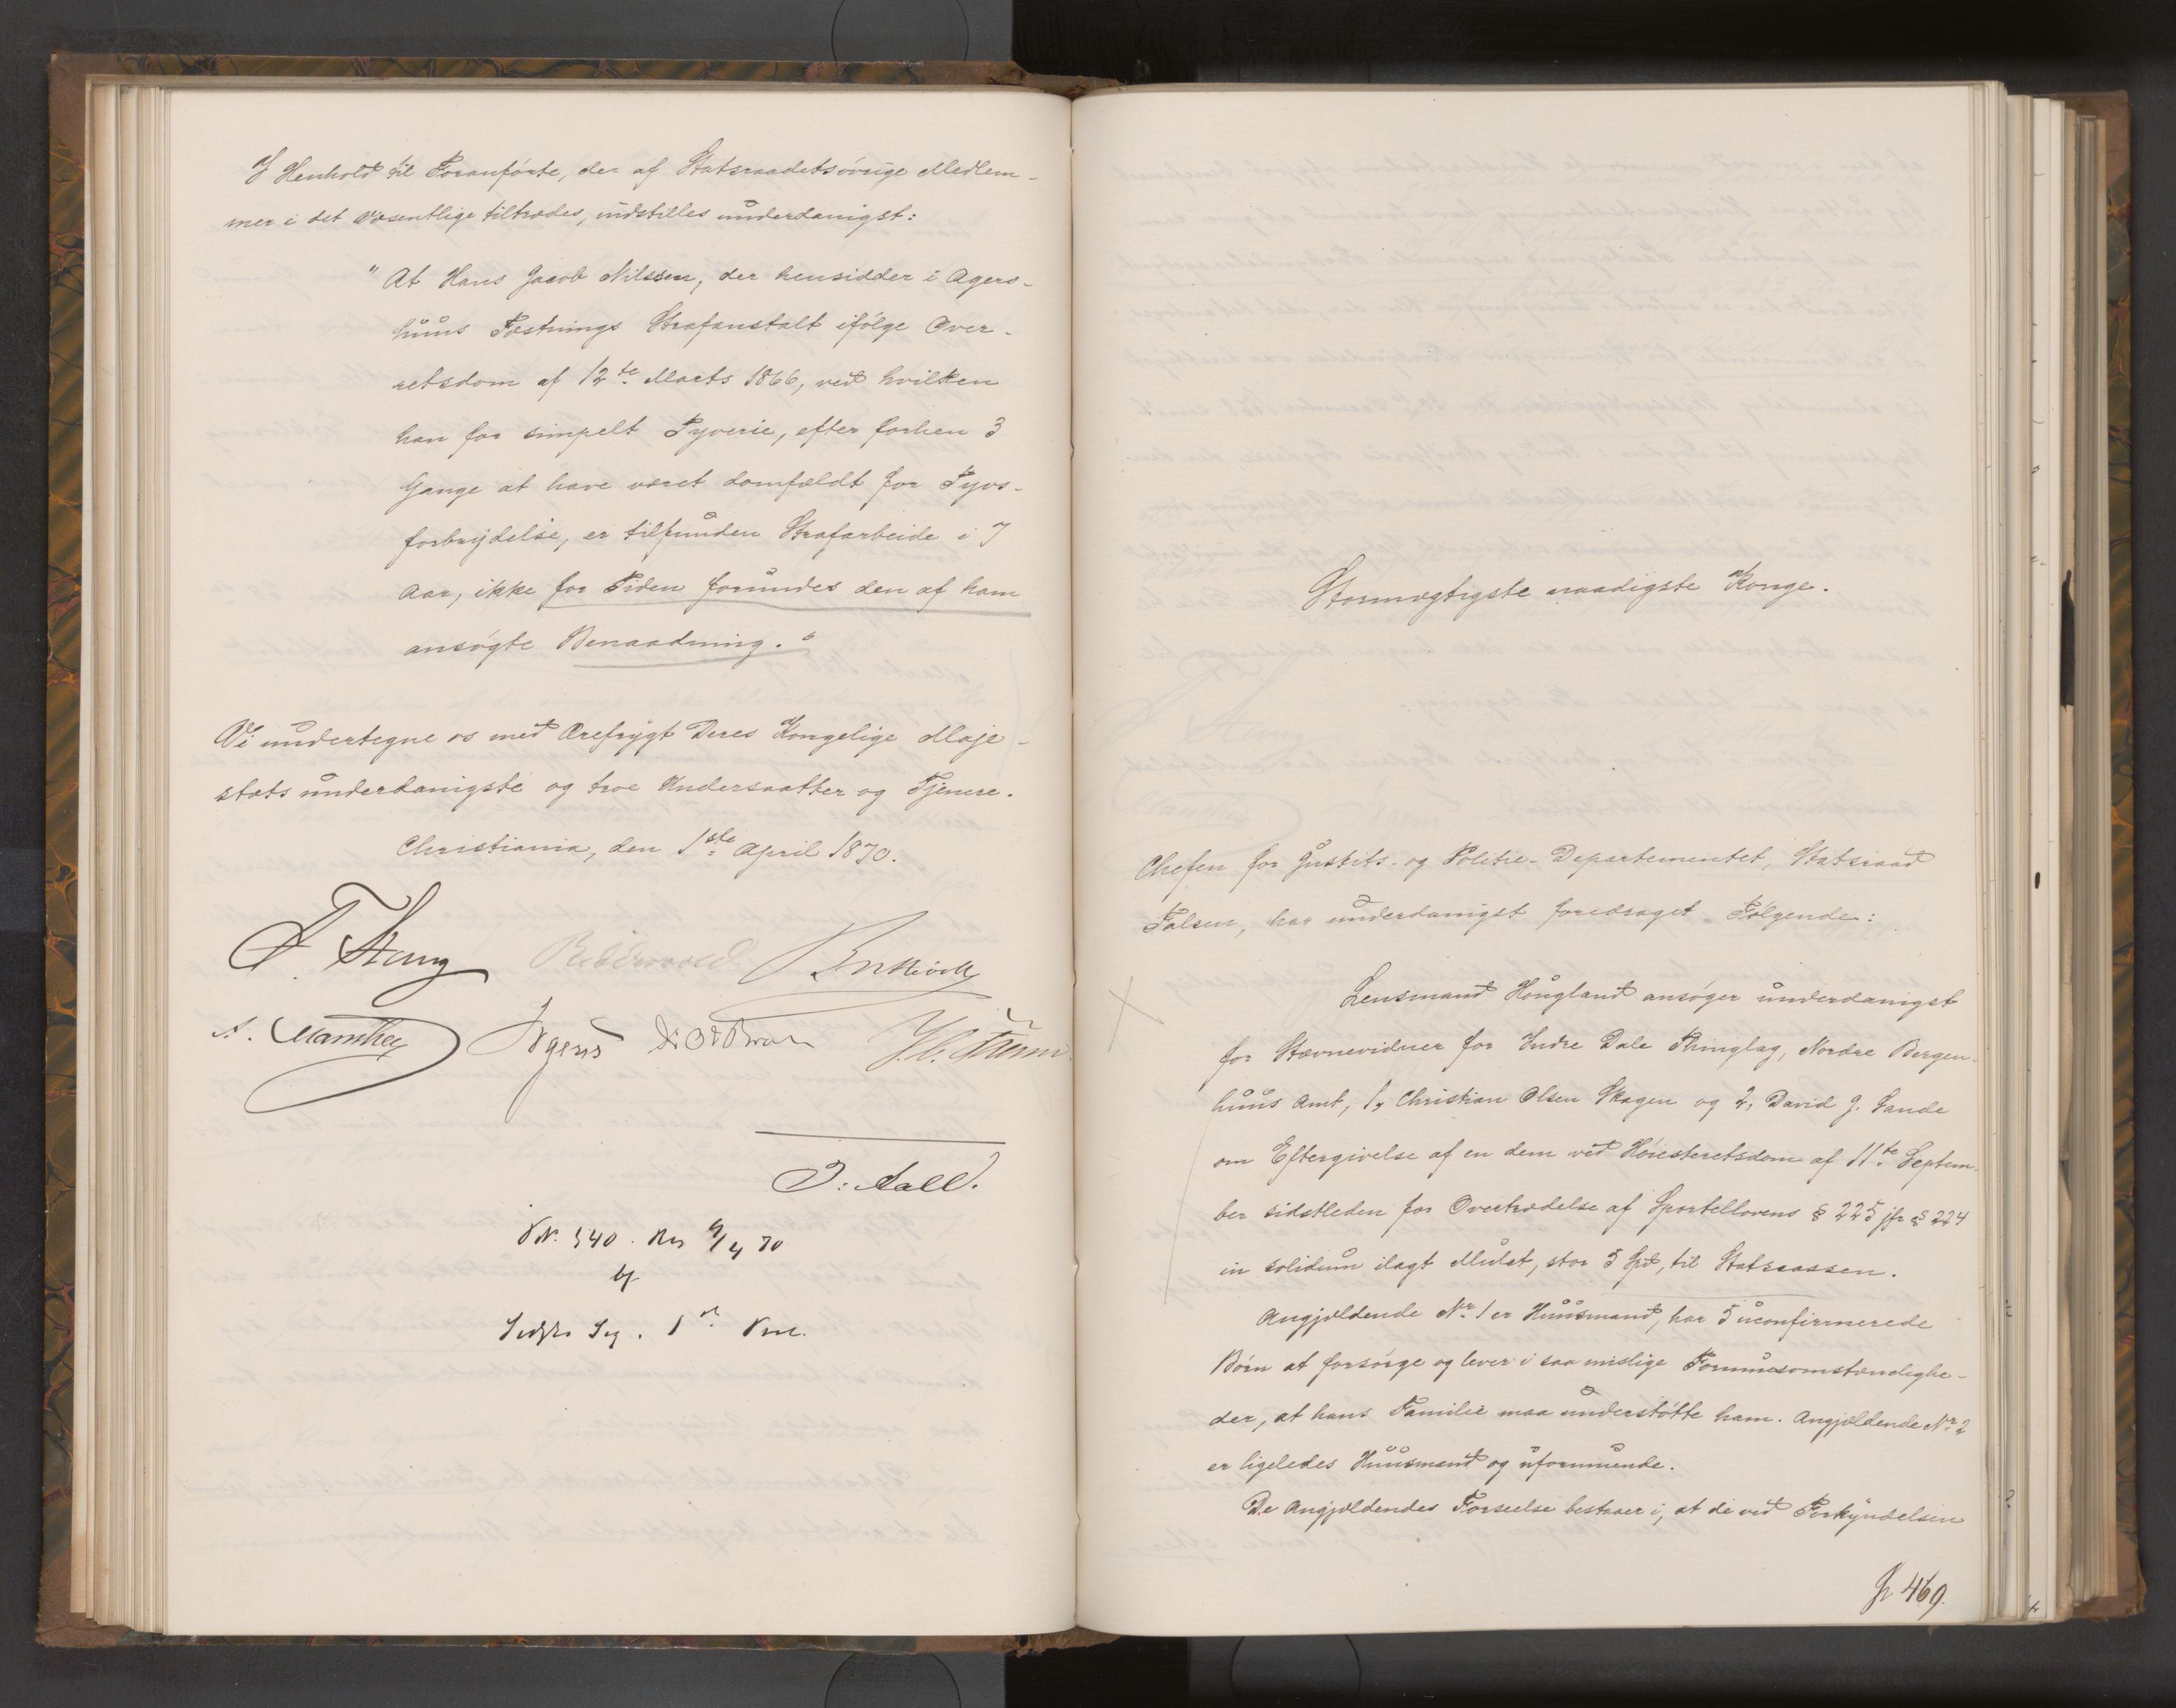 I Henhold til Foranførte, der af Statsraadets øvrige Medlem-
mer i det Væsentlige tiltrædes, indstilles underdanigst:
"At Hans Jacob Nilssen, der hensidder i Agers-
huus Fæstnings Strafanstalt ifølge Over-
retsdom af 12te Marts 1866, ved hvilken
han for simpelt Tyverie, efter forhen 3
Gange at have været domfældt for Tyvs-
forbrydelse, er tilfunden Strafarbeide i 7
Aar, ikke for Tiden forundes den af ham
ansøgte Benaadning."
Vi undertegne os med Ærefrygt Deres Kongelige Maje-
stæts underdanigste og troe Undersaatter og Tjenere.
Christiania, den 1ste April 1870.
F. Stang
Irgens
J. Aall.
540. 9/4 70
Stormægtigste naadigste Konge.
Chefen for Justits- og Politie-Departementet, Statsraad
Falsen, har underdanigst foredraget Følgende:
Lensmand Hougland ansøger underdanigst
for Stævnevidner for Indre Dale Thinglag, Nordre Bergen-
huus Amt, 1, Christian Olsen Skagen og 2, David J. Sande
om Eftergivelse af en dem ved Høiesteretsdom af 11te Septem-
ber sidstleden for Overtrædelse af Sportellovens § 225 jfr § 224
in solidum ilagt Mulct, stor 5 Spd, til Statscassen.
Angjældende Nr. 1 er Huusmand, har 5 uconfirmerede
Børn at forsørge og lever i saa mislige Formuesomstændighe-
der, at hans Familie maa understøtte ham. Angjældende Nr. 2
er ligeledes Huusmand og uformuende.
De Angjældendes Forseelse bestaaer i, at de ved Forkyndelsen
Jr 469.